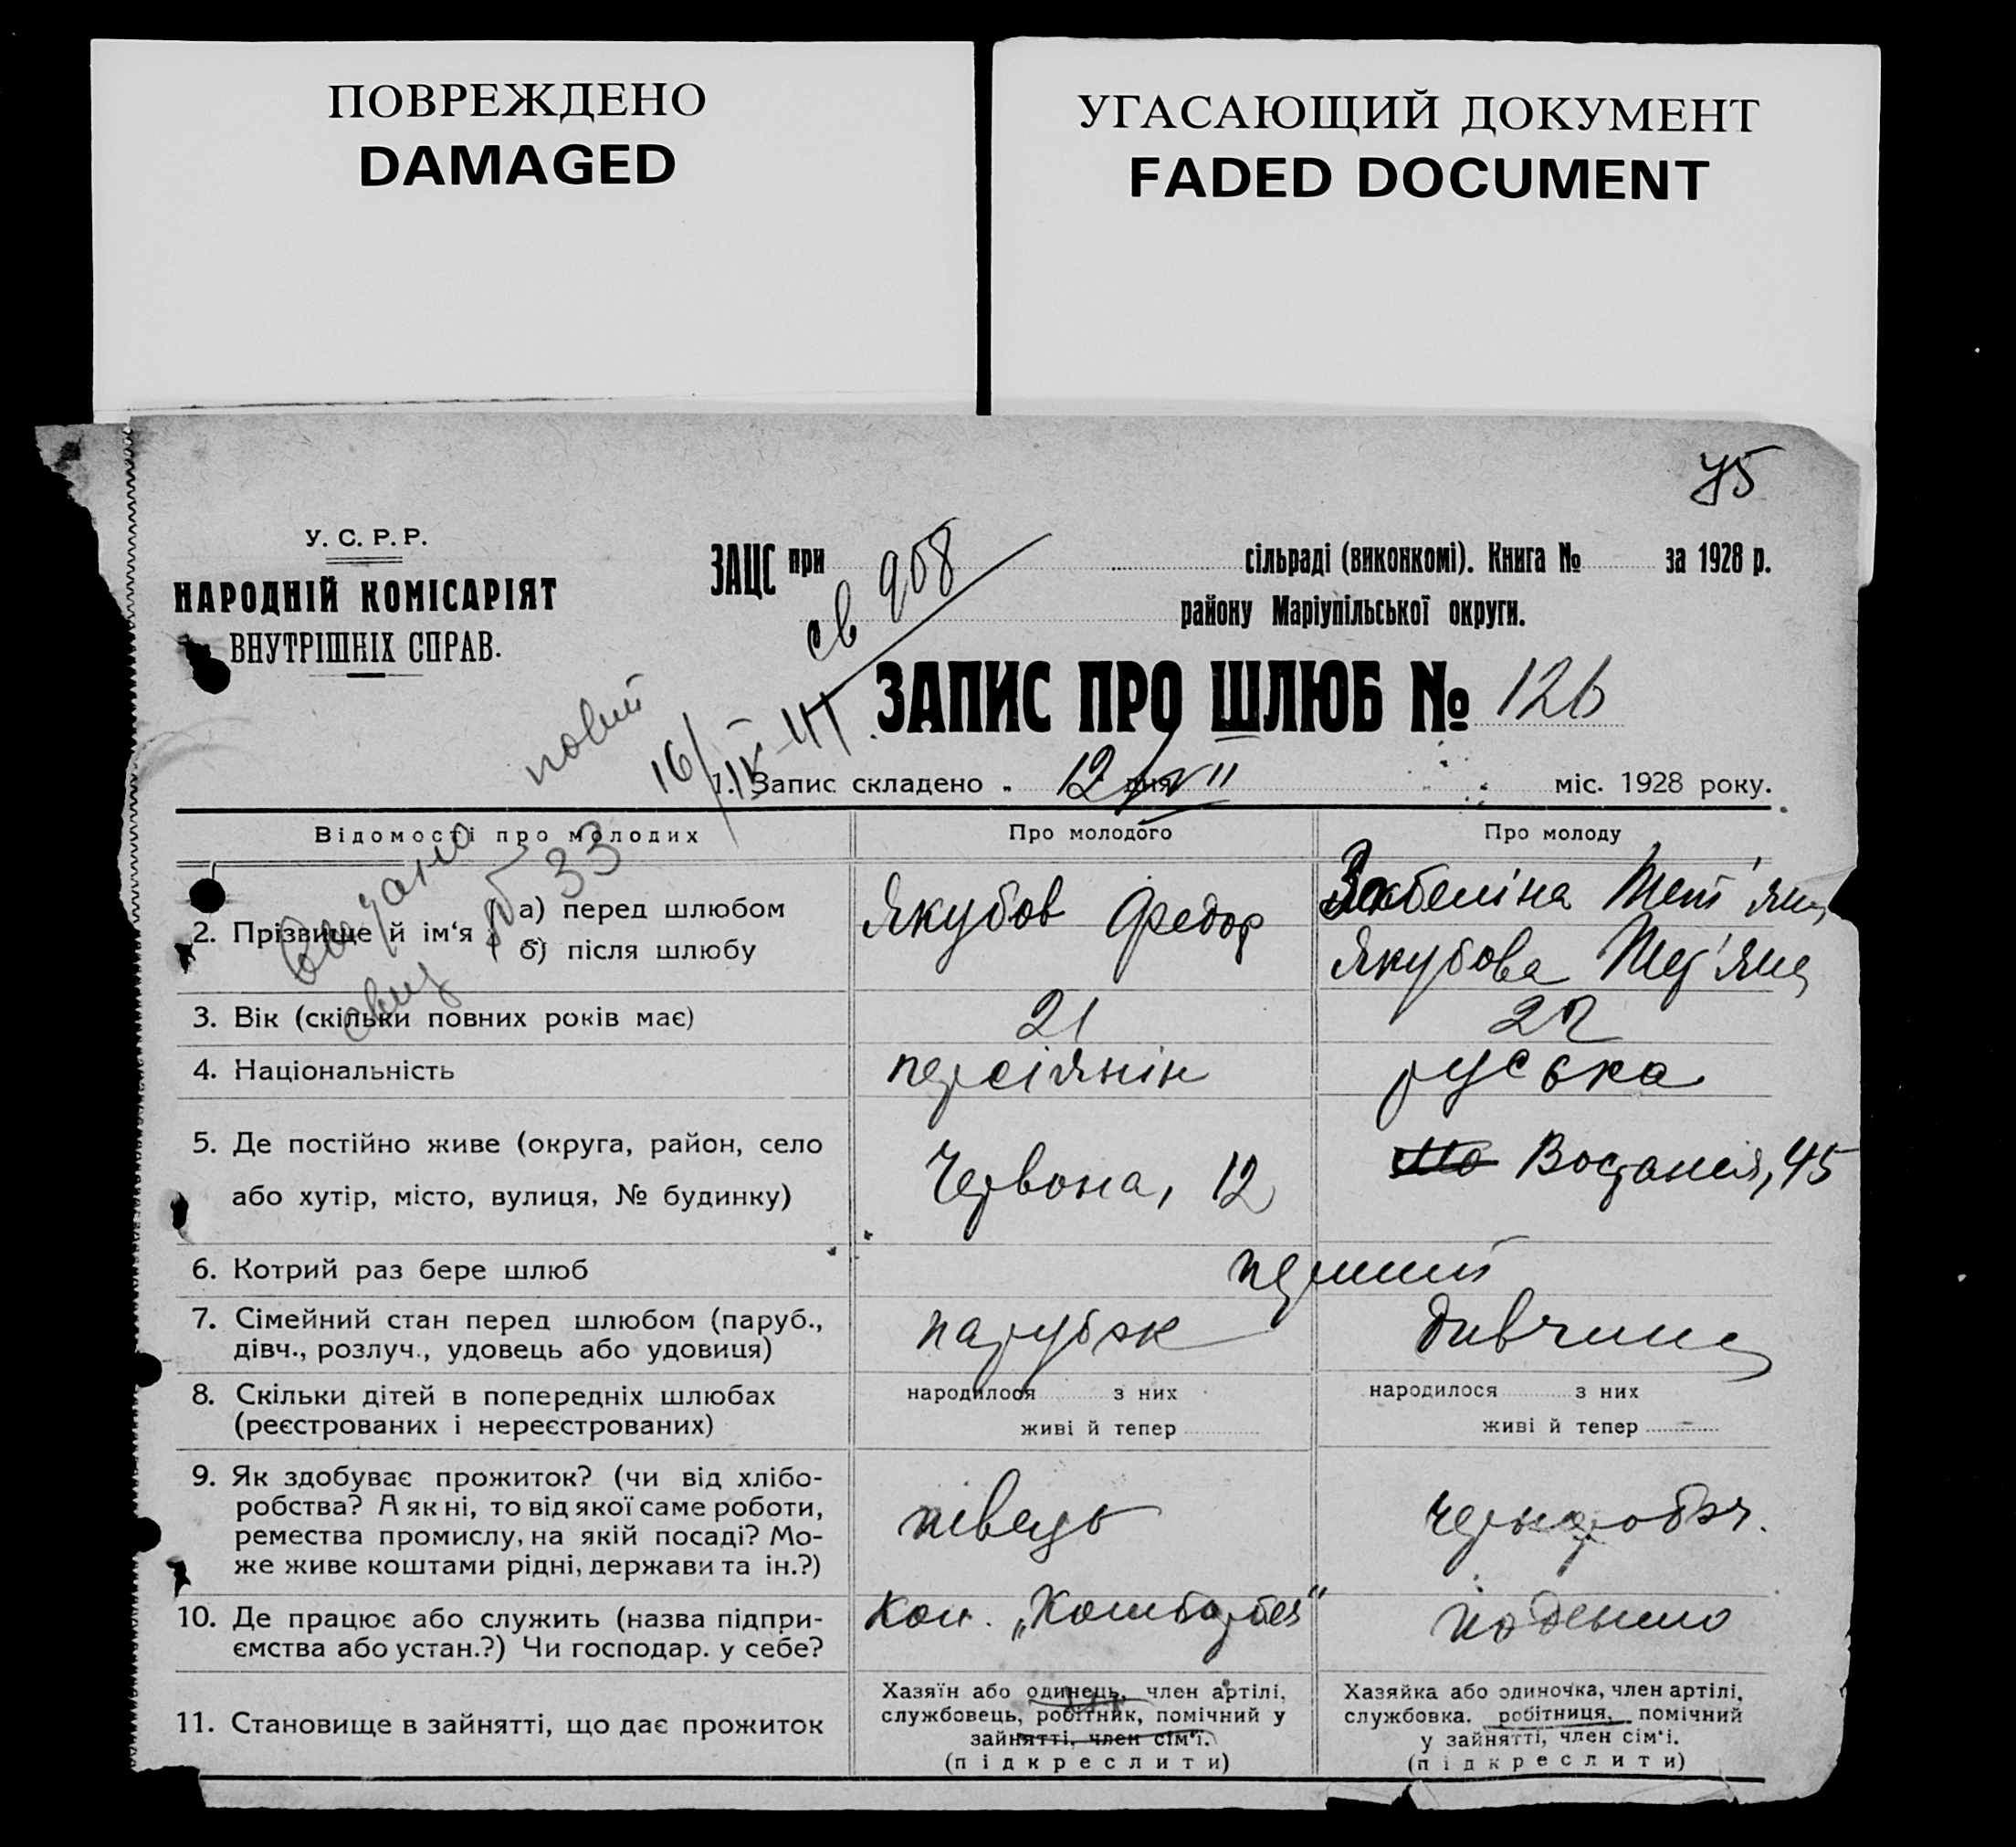 ПОВРЕЖДЕНО
DAMAGED
УГАСАЮЩИЙ ДОКУМЕНТ
FADED DOCUMENT
45
У. С. Р. Р.
НАРОДНІЙ КОМІСАРІЯТ
ВНУТРІШНІХ СПРАВ.
ЗАЦС при сільраді (виконкомі). Книга № за 1928 р.
району Маріупільської округи.
св 908
ЗАПИС ПРО ШЛЮБ № 126
1. Запис складено „ 12/VII дня міс. 1928 року.
Відомості про молодих
Про молодого
Про молоду
2. Прізвище й ім'я
а) перед шлюбом
б) після шлюбу
Якубов Федор
Забеліна Тет'яна
Якубова Тет'яна
3. Вік (скільки повних років має)
21
22
4. Національність
персіянін
руська
5. Де постійно живе (округа, район, село
або хутір, місто, вулиця, № будинку)
Червона, 12
Востания, 45
6. Котрий раз бере шлюб
перший
7. Сімейний стан перед шлюбом (паруб.,
дівч., розлуч., удовець або удовиця)
парубок
дивчина
8. Скільки дітей в попередніх шлюбах
(реєстрованих і нереєстрованих)
народилося з них
живі й тепер
народилося з них
живі й тепер
9. Як здобуває прожиток? (чи від хлібо-
робства? А як ні, то від якої саме роботи,
ремества промислу, на якій посаді? Мо-
же живе коштами рідні, держави та ін.?)
чернороб.
10. Де працює або служить (назва підпри-
ємства або устан.?) Чи господар. у себе?
поденно
11. Становище в зайнятті, що дає прожиток
Хазяїн або одинець, член артілі,
службовець, робітник, помічний у
зайнятті, член сім'ї.
(підкреслити)
Хазяйка або одиночка, член артілі,
службовка. робітниця, помічний
у зайнятті, член сім'ї.
(підкреслити)